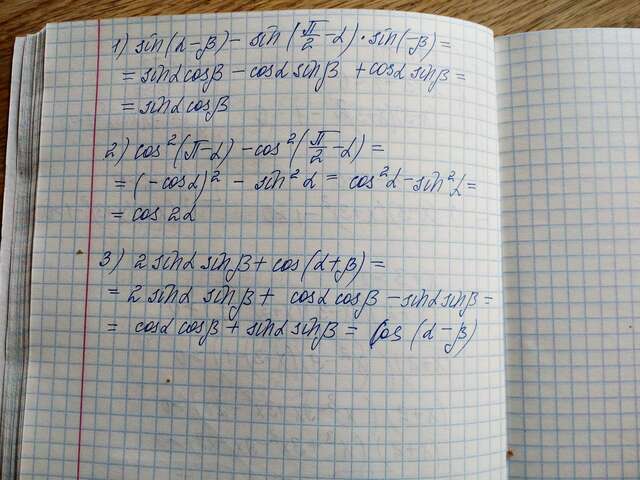 1) sin(α-β) - sin(π/2 - α) · sin(-β) =
= sinα cosβ - cosα sinβ + cosα sinβ =
= sinα cosβ
2) cos²(π-α) - cos²(π/2 - α) =
= (-cosα)² - sin²α = cos²α - sin²α =
= cos 2α
3) 2 sinα sinβ + cos(α+β) =
= 2 sinα sinβ + cosα cosβ - sinα sinβ =
= cosα cosβ + sinα sinβ = cos (α-β)